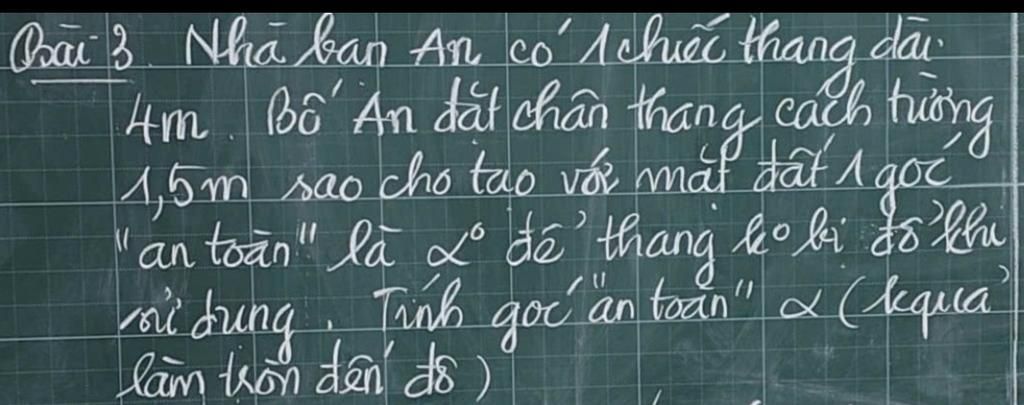 Bài 3. Nhà bạn An có 1 chiếc thang dài
4m. Bố An đặt chân thang cách tường
1,5m sao cho tạo với mặt đất 1 góc
"an toàn" là α° để thang ko bị đổ khi
sử dụng. Tính góc "an toàn" α (kquả
làm tròn đến độ)